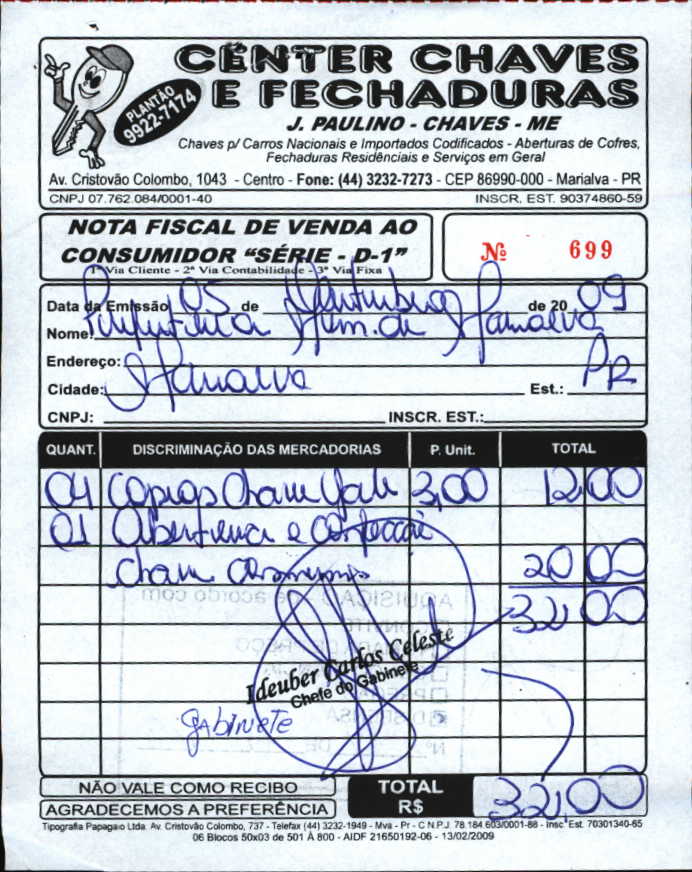 CENTER CHAVES
E FECHADURAS
PLANTÃO
9922-7174
J. PAULINO - CHAVES - ME
Chaves p/ Carros Nacionais e Importados Codificados - Aberturas de Cofres,
Fechaduras Residênciais e Serviços em Geral
Av. Cristovão Colombo, 1043 - Centro - Fone: (44) 3232-7273 - CEP 86990-000 - Marialva - PR
CNPJ 07.762.084/0001-40 INSCR. EST. 90374860-59
NOTA FISCAL DE VENDA AO
CONSUMIDOR "SÉRIE - D-1"
1ª Via Cliente - 2ª Via Contabilidade - 3ª Via Fixa
Nº 699
Data da Emissão 05 de Setembro de 2009
Nome: Prefeitura Mun. de Marialva
Endereço:
Cidade: Marialva Est.: PR
CNPJ: INSCR. EST.:
QUANT. DISCRIMINAÇÃO DAS MERCADORIAS P. Unit. TOTAL
04 Copias Chave Yale 3,00 12,00
01 Abertura e confecção
chave 20,00
32,00
AQUISIÇÃO de acordo com
Ideuber Carlos Celeste
Chefe do Gabinete
GABINETE
NÃO VALE COMO RECIBO
AGRADECEMOS A PREFERÊNCIA
TOTAL
R$ 32,00
Tipografia Papagaio Ltda. Av. Cristovão Colombo, 737 - Telefax (44) 3232-1949 - Mva - Pr - C.N.P.J. 78.184.603/0001-88 - Insc. Est. 70301340-65
06 Blocos 50x03 de 501 À 800 - AIDF 21650192-06 - 13/02/2009